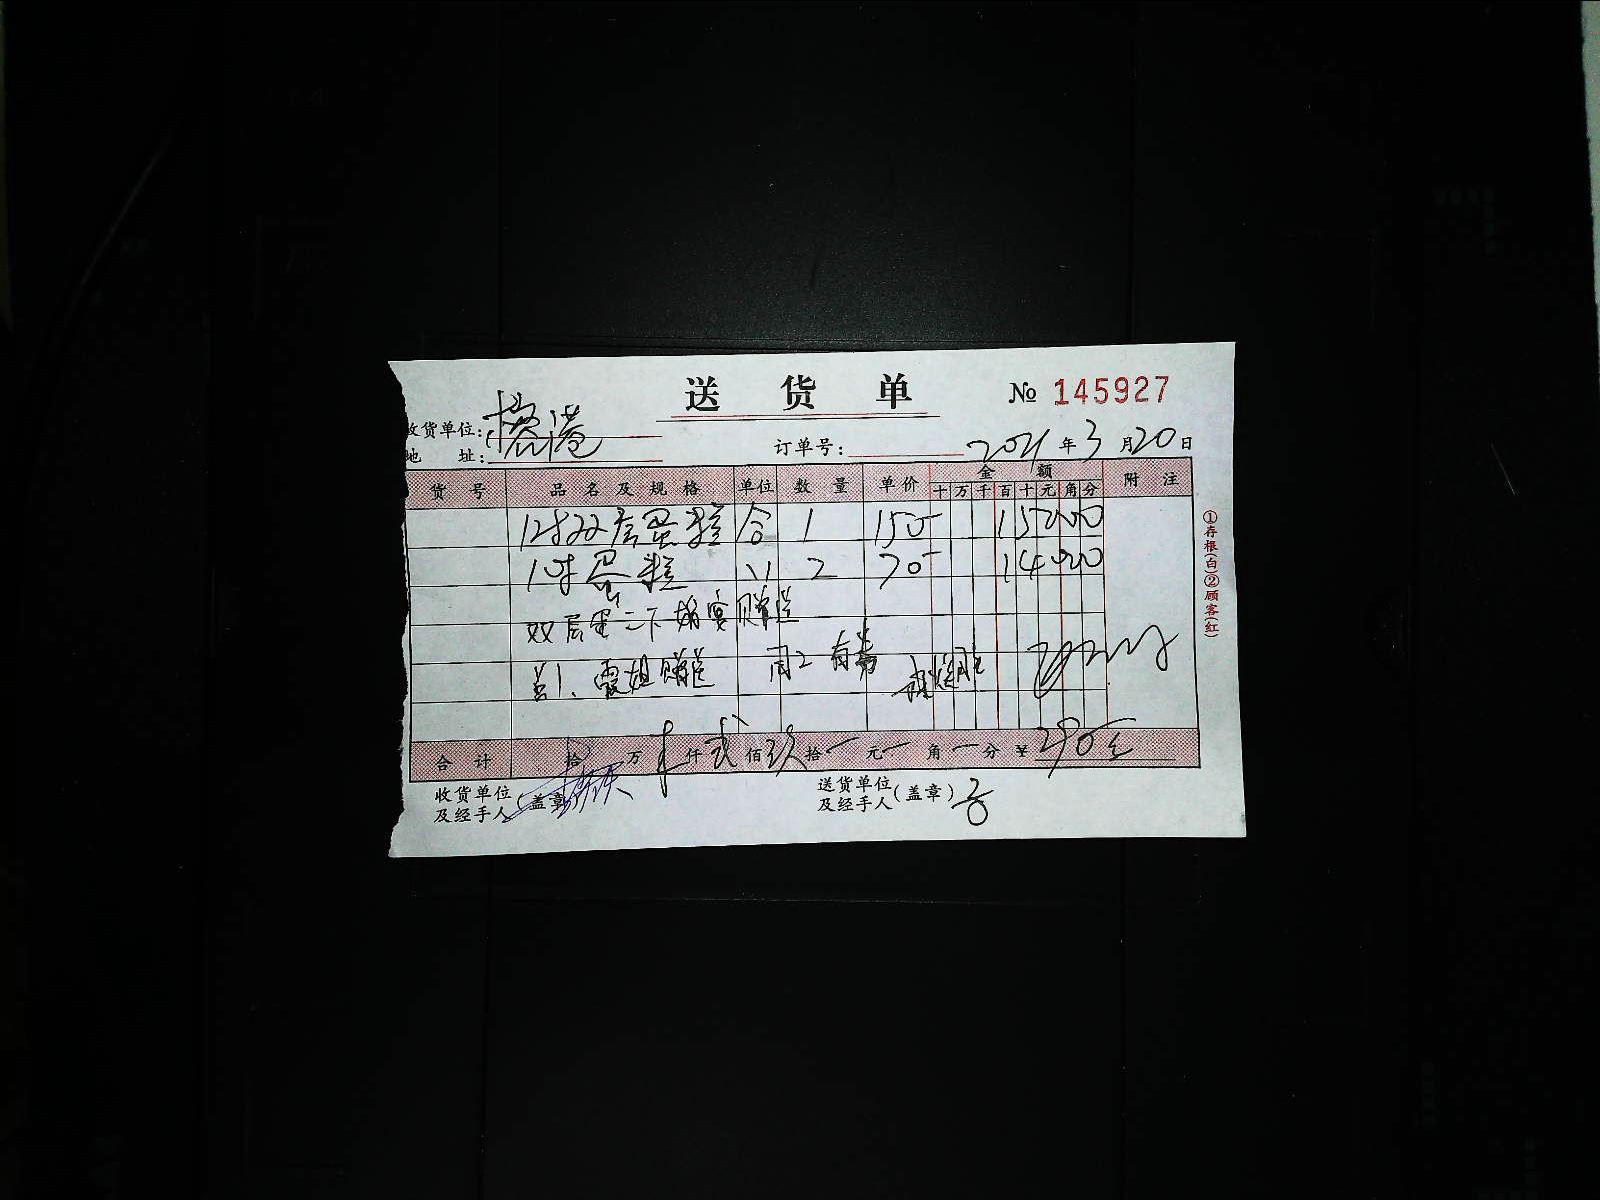 送货单 № 145927
收货单位: 港
地 址: 订单号: 2021年3月20日
货号 品名及规格 单位 数量 单价 金额 附注
十 万 千 百 十 元 角 分
12寸双层蛋糕 合 1 150 15000
10寸蛋糕 〃 2 70 14000
双层蛋二下婚宴赠送
兰1、霞姐赠送 周2
合计 拾 万 仟 贰 佰 玖 拾 一 元 一 角 一 分 ¥ 290元
收货单位及经手人(盖章) 送货单位及经手人(盖章)
①存根(白)②顾客(红)